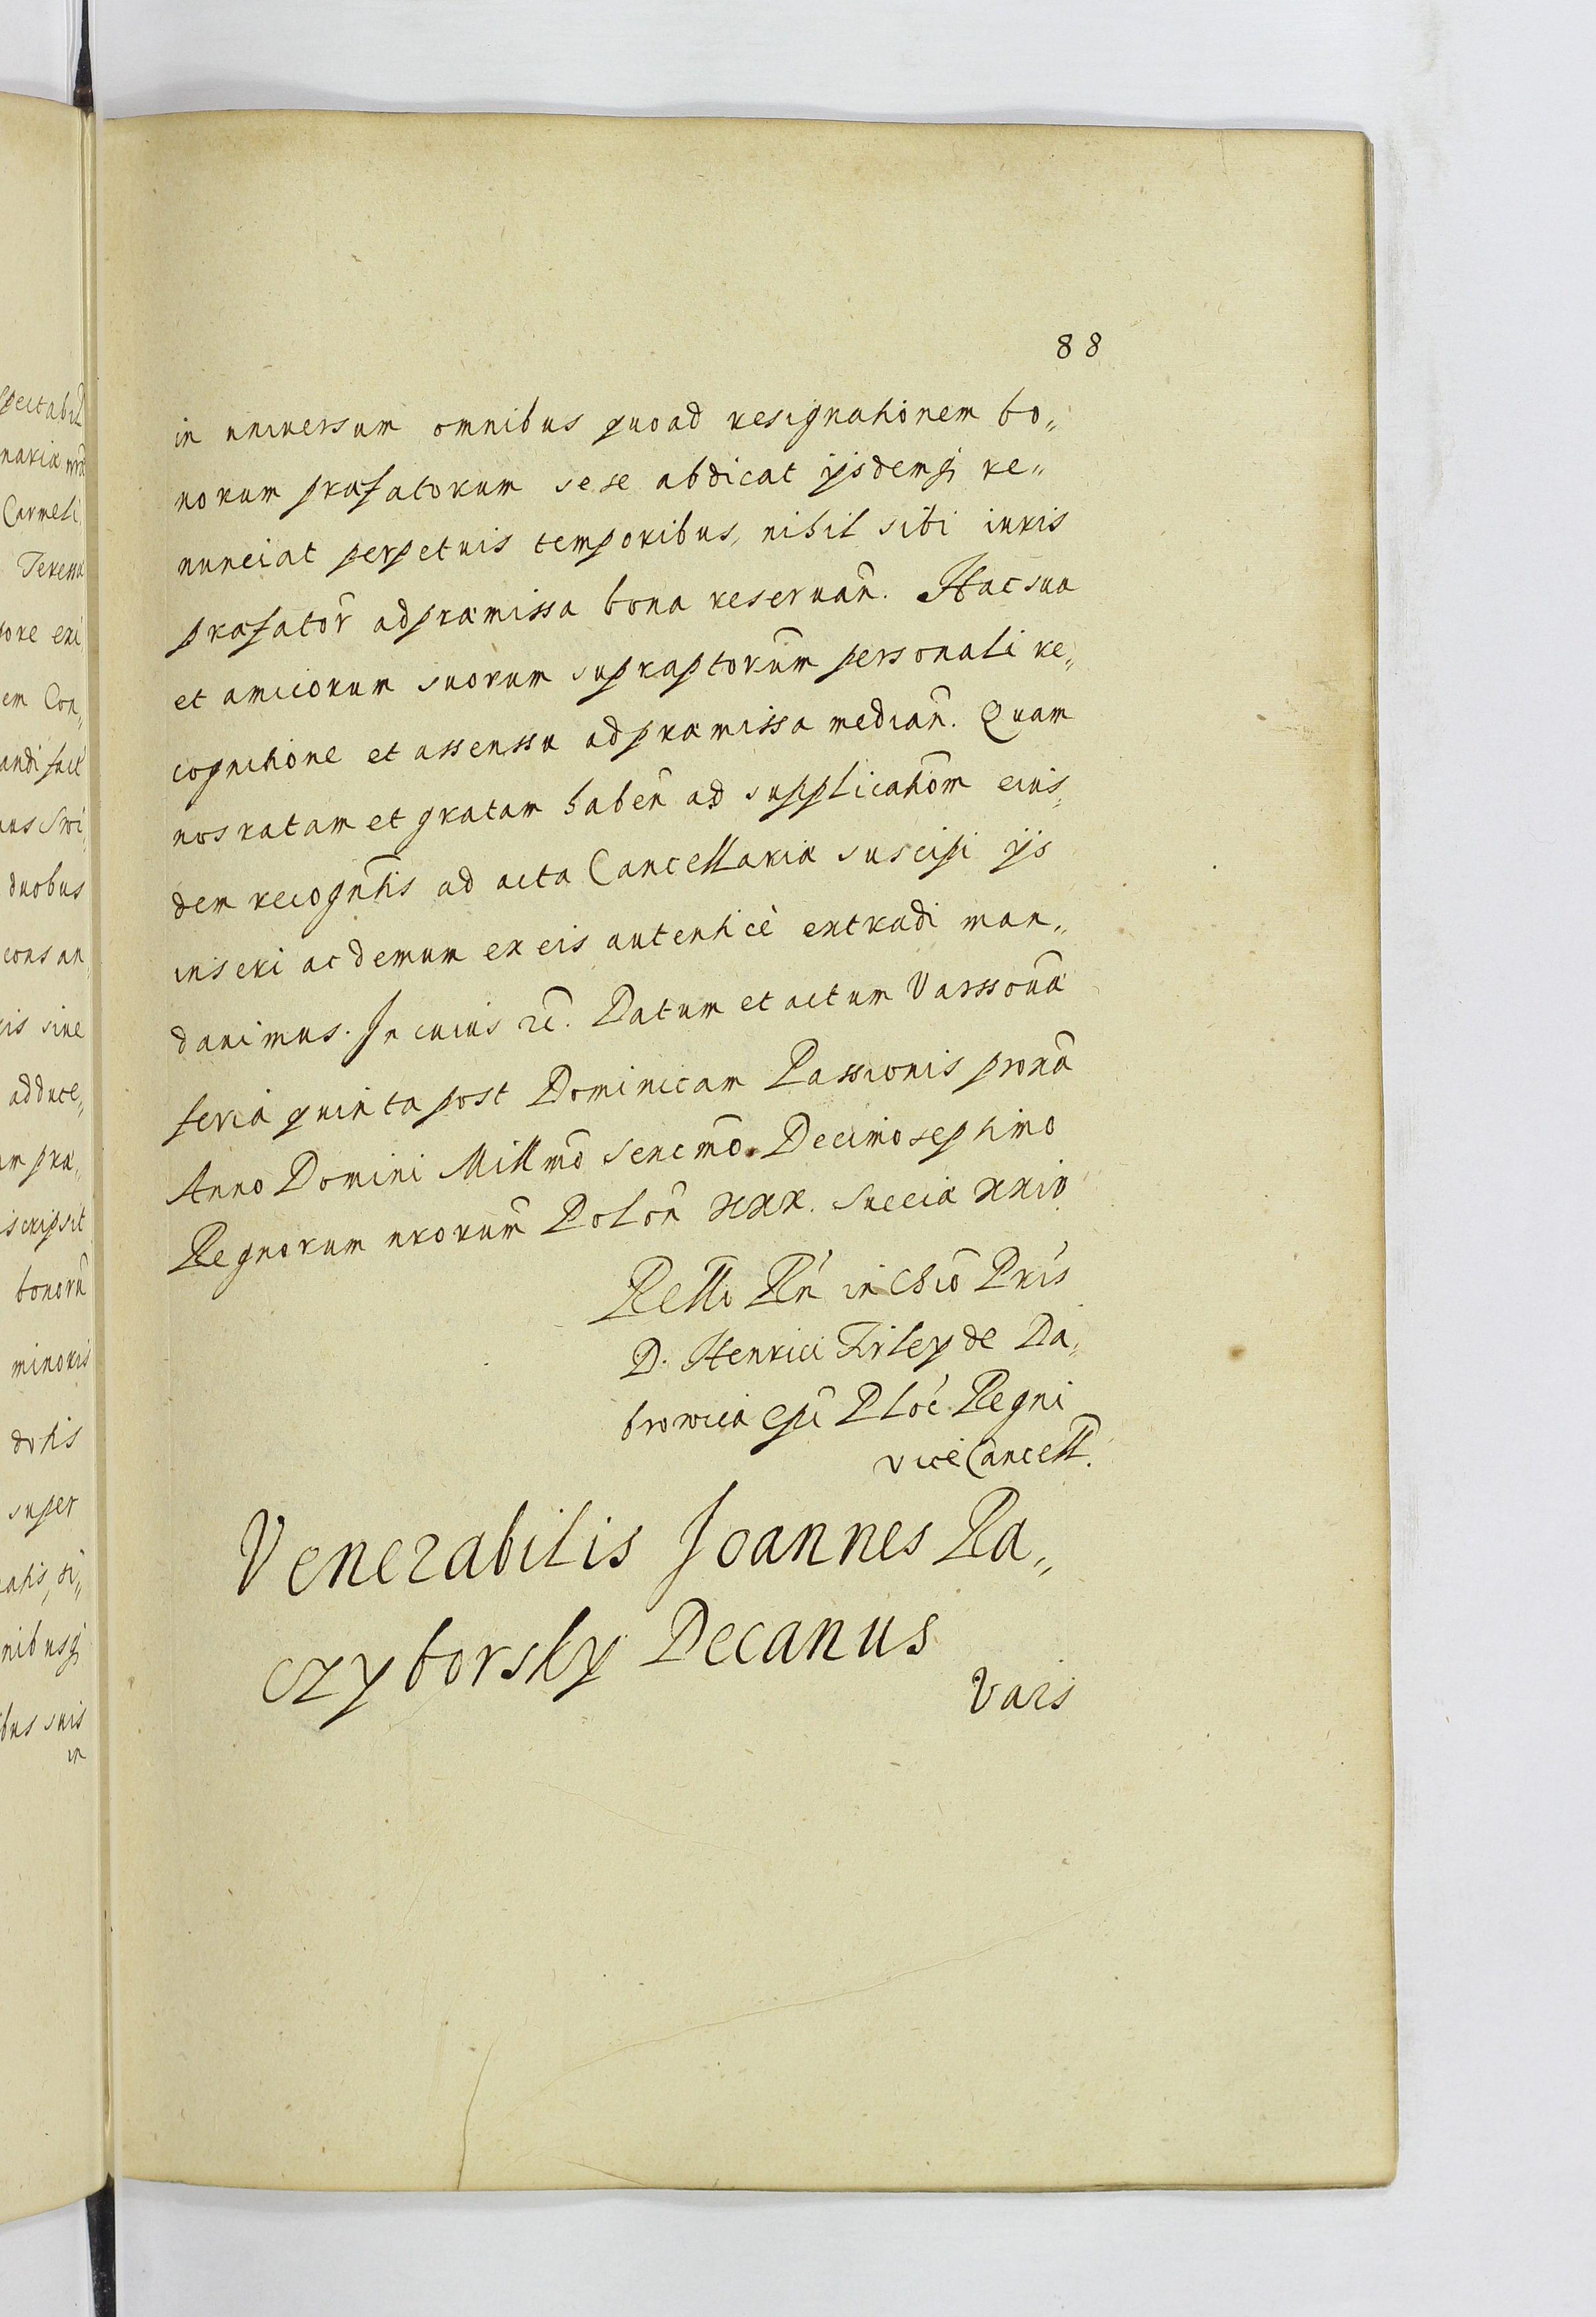 88
in uniuersum omnibus quoad resignationem bo„
norum præfatorum sese abdicat ijsdemq́ re„
nunciat perpetuis temporibus, nihil sibi iuris
præfator̃ ad præmissa bona reseruañ. Hac sua
et amicorum suorum supraptorum̃ personali re„
cognitione et assenssu ad præmissa mediañ. Quam
nos ratam et gratam habeñ ad supplicatiõm eius„
dem recogñtis ad acta Cancellariæ suscipi ijs
inseri ac demum ex eis autenticè extradi man„
dauimus. In cuius rc̃. Datum et actum Varssouiæ
feria quinta post Dominicam Passionis proxã
Anno Domini Millmõ Sexcmõ. Decimoseptimo
Regnorum nrorum̃ Poloñ xxx. Sueciæ xxiv
Relło Rñ in Chrõ Pris
D. Henrici Firley de Da„
browica Epĩ Ploc̃ Regni
vice Cancell̃.
Venerabilis Joannes Ra„
czyborsky Decanus
Vars
spectabil̃
nariæ nrõ
Carmeli
em Con„
duobus
consan
is siue
adduce„
m præ„
scripsit
bonorũ
minoris
dotis
super
nibusq́
bus suis
in